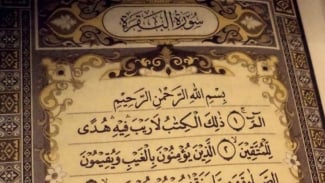 سُورَةُ الْبَقَرَةِ
بِسْمِ اللَّهِ الرَّحْمَٰنِ الرَّحِيمِ
الٓمٓ ١ ذَٰلِكَ الْكِتَٰبُ لَا رَيْبَ فِيهِ هُدًى
لِلْمُتَّقِينَ ٢ الَّذِينَ يُؤْمِنُونَ بِالْغَيْبِ وَيُقِيمُونَ